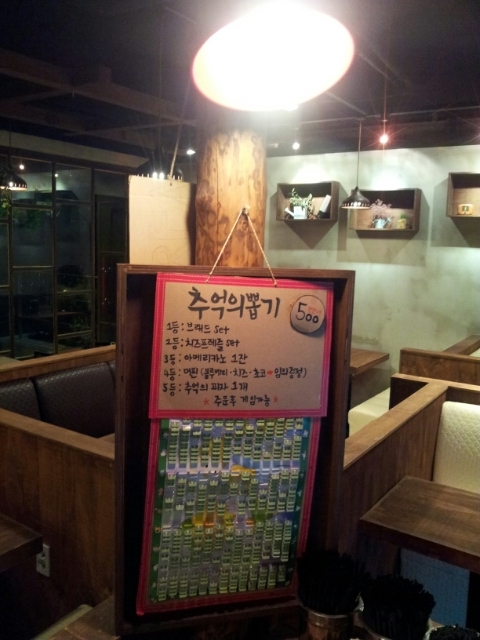 추억의뽑기 500
1등: 브레드 set
2등: 치즈프레즐 set
3등: 아메리카노 1잔
4등: 머핀 (블루베리·치즈·초코 임의증정)
5등: 추억의 과자 1개
* 주문후 게임가능 *